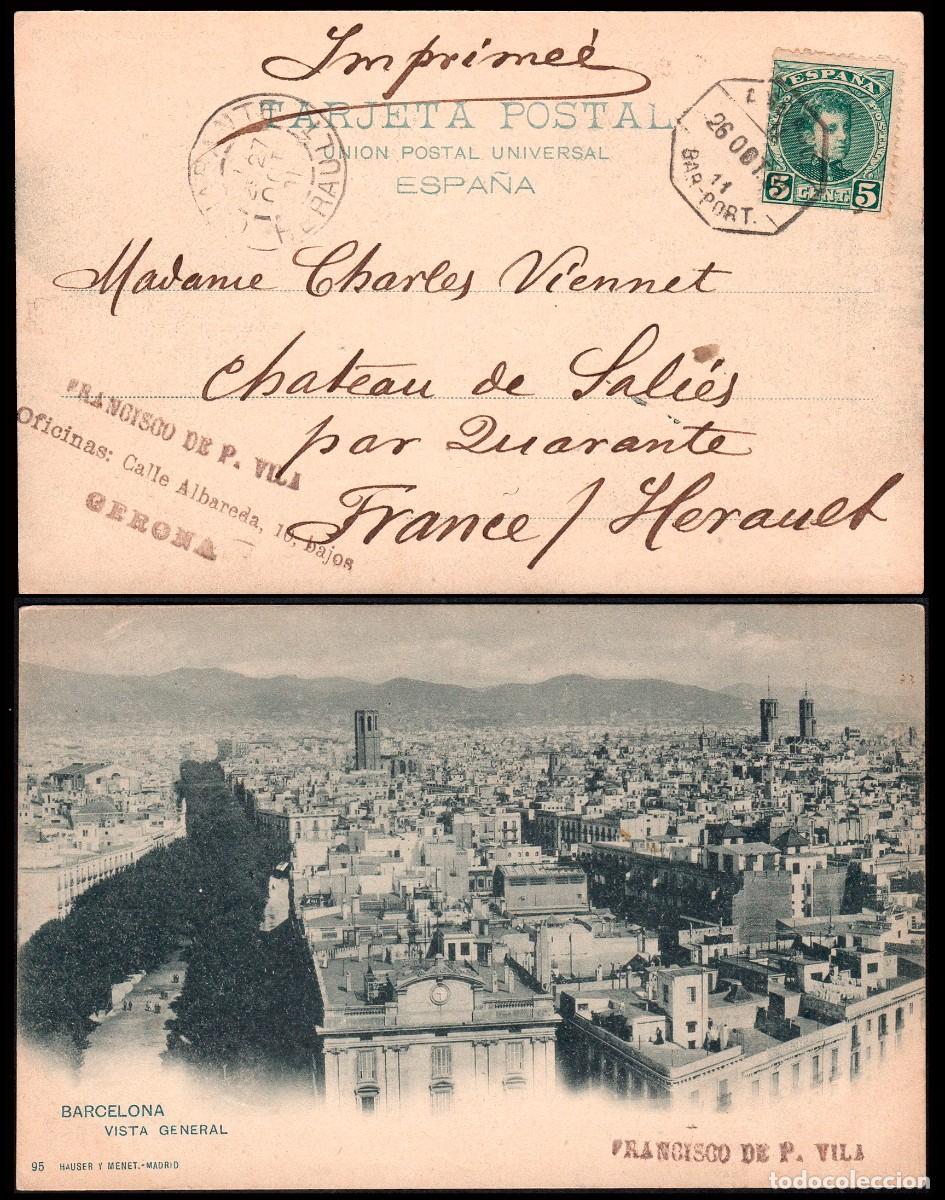 Imprimeé
TARJETA POSTAL
UNION POSTAL UNIVERSAL
ESPAÑA
ESPAÑA
5 CENT. 5
26 OCT.
11
BAR-PORT.
27
HERAULT
Madame Charles Viennet
Chateau de Saliés
par Quarante
France / Herault
FRANCISCO DE P. VILA
Oficinas: Calle Albareda, 16, bajos
GERONA
BARCELONA
VISTA GENERAL
95 HAUSER Y MENET.-MADRID
FRANCISCO DE P. VILA
todocoleccion